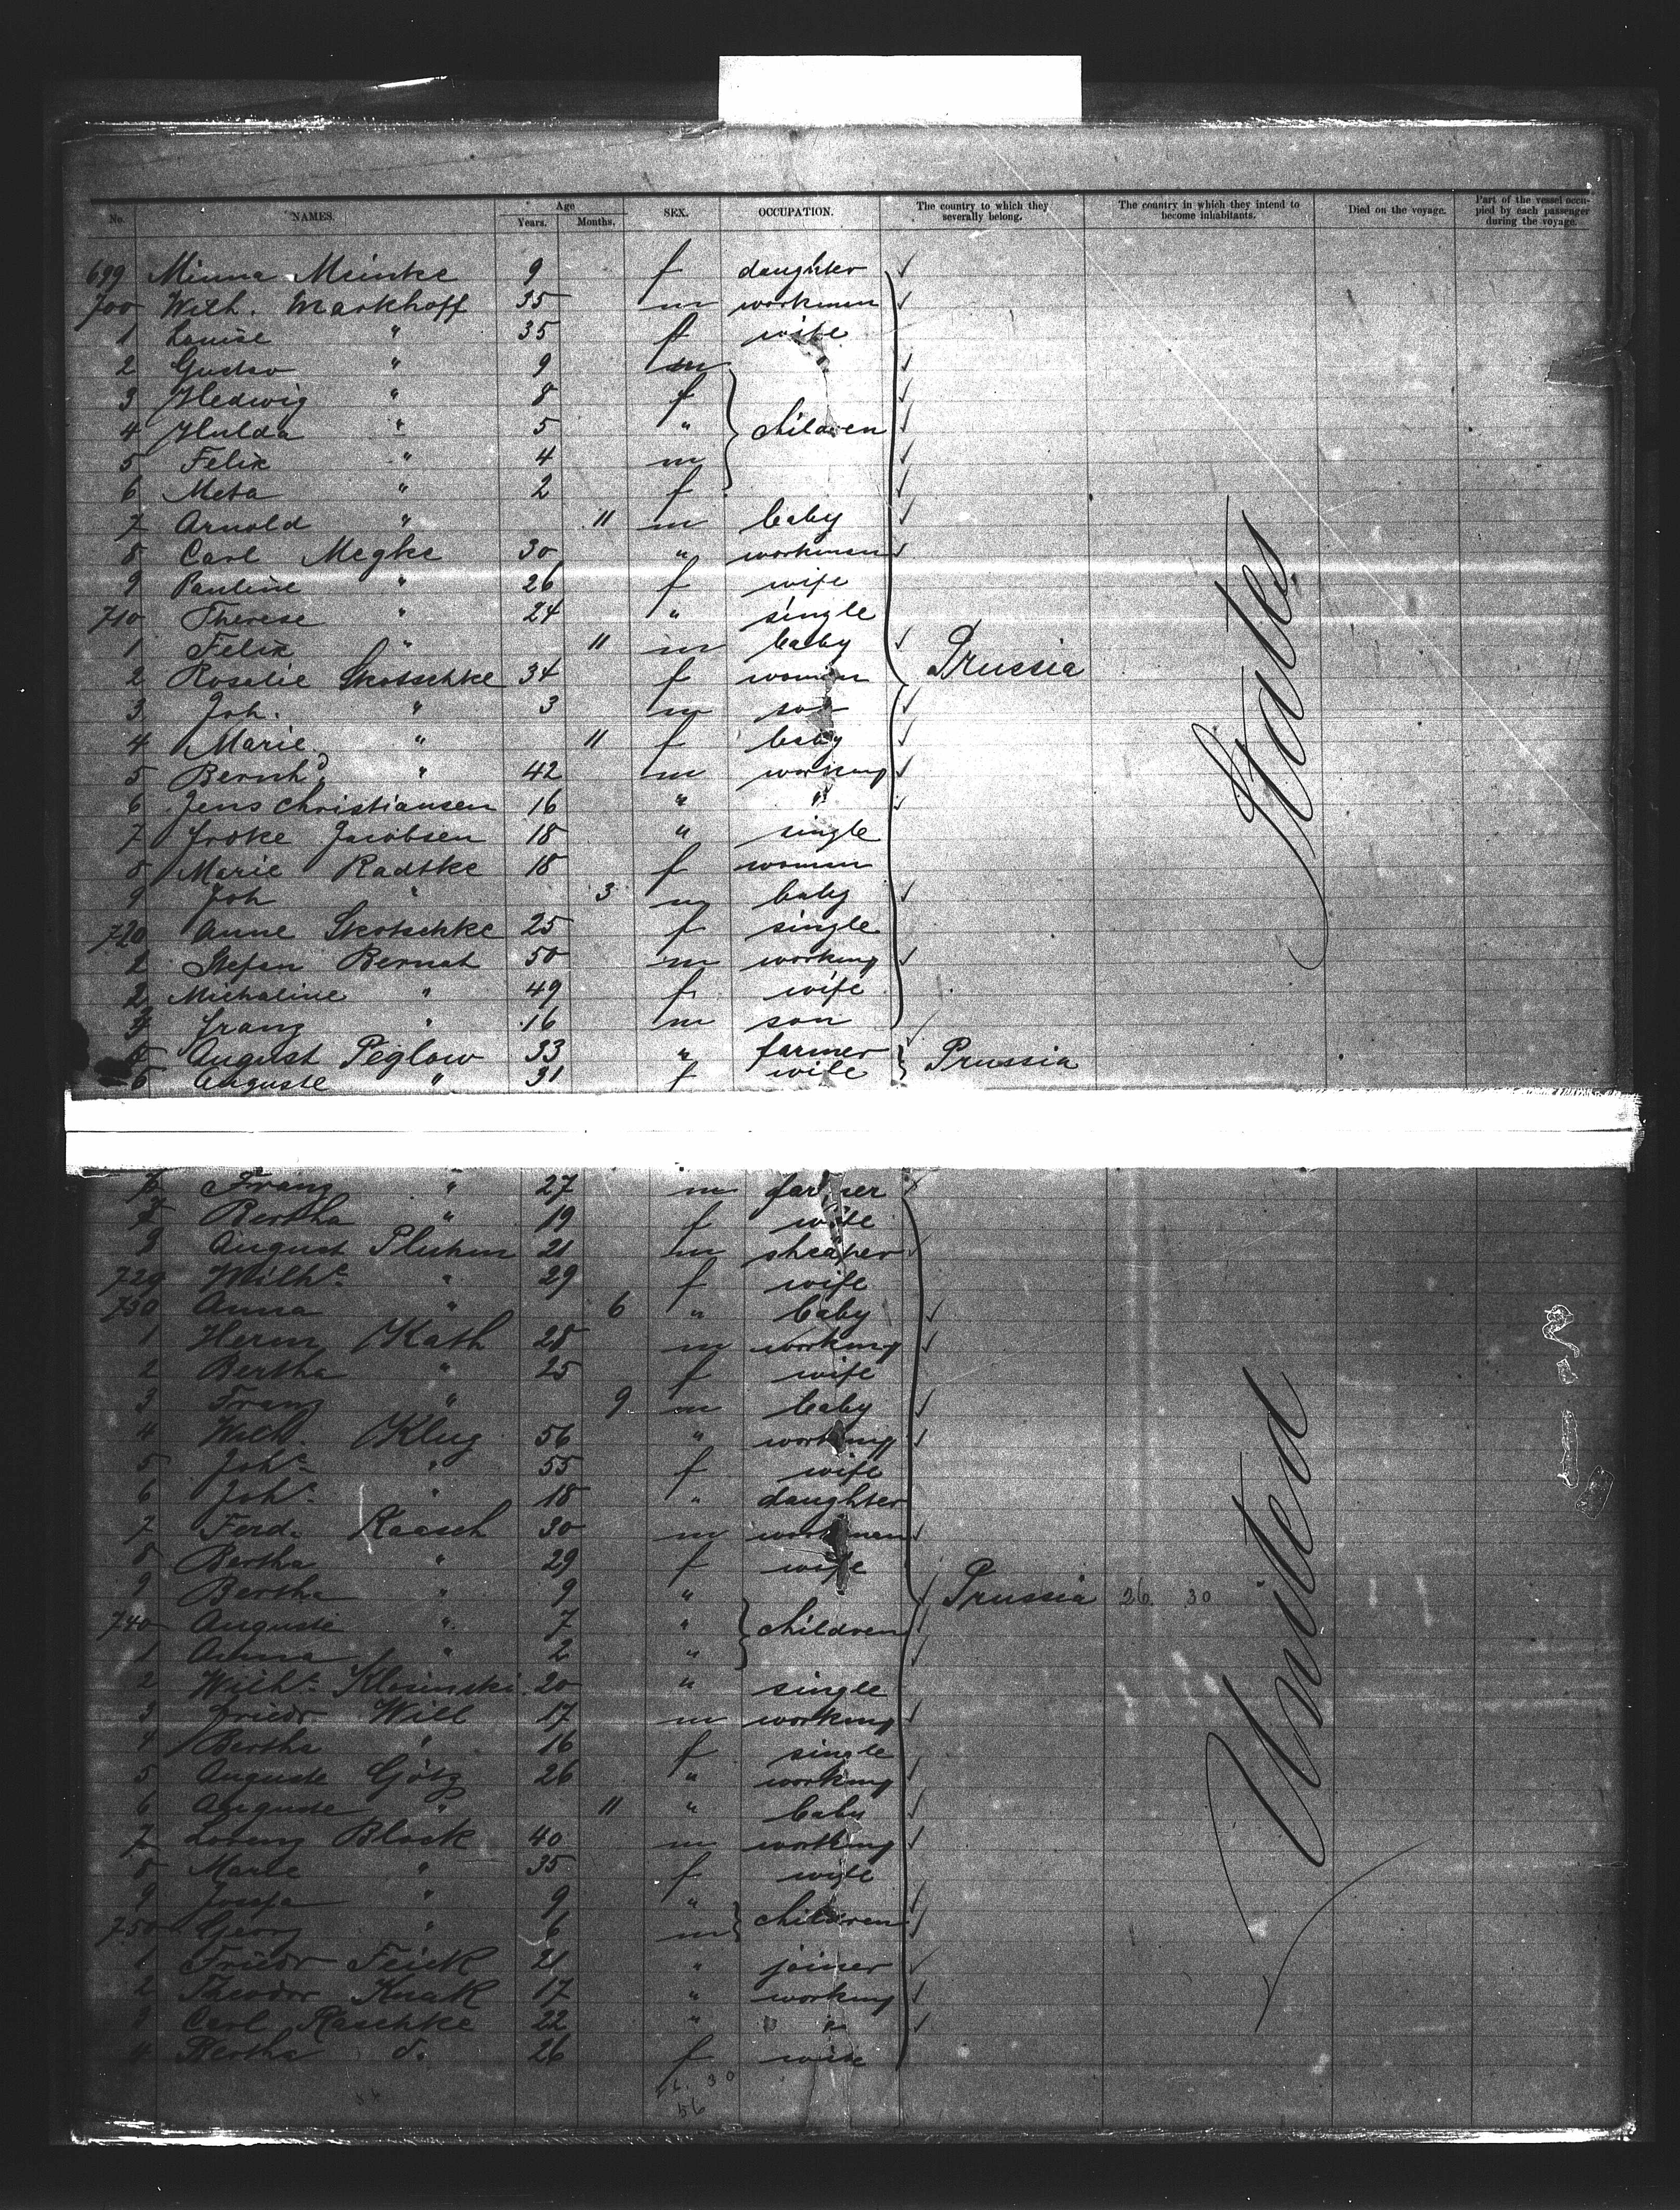 No. NAMES. Age Years. Months. SEX. OCCUPATION. The country to which they severally belong. The country in which they intend to become inhabitants. Died on the voyage. Part of the vessel occupied by each passenger during the voyage.
699 Minna Meinke 9 f daughter
700 Wilh. Markhoff 35 m workman
1 Louise " 35 f wife
2 Gustav " 9 m "
3 Hedwig " 8 f
4 Hulda " 5 " children
5 Felix " 4 m
6 Meta " 2 f
7 Arnold " 11 m baby
8 Carl Megke 30 " workman
9 Pauline " 26 f wife
710 Therese " 24 " single
1 Felix " 11 m baby
2 Rosalie Skotschke 34 f woman Prussia
3 Joh. " 3 m son
4 Marie " 11 f baby
5 Bernhd " 42 m working
6 Jens Christiansen 16 " "
7 Jacobsen 18 " single
8 Marie Radtke 18 f woman
9 Joh " 3 m baby
720 Anne Skotschke 25 f single
1 Stefan Bernat 50 m working
2 Michaline " 49 f wife
3 Franz " 16 m son
August Peglow 33 " farmer Prussia
Auguste " 31 f wife
6 Franz " 27 m farmer
7 Bertha " 19 f wife
8 August 21 m
729 Wilhe " 29 f wife
730 Anna " 6 " baby
1 Herm Kath 28 m working
2 Bertha " 25 f wife
3 Franz " 9 m baby
4 Wilh Klug 56 " working
5 Johe " 55 f wife
6 Johe " 18 " daughter
7 Ferd. Raasch 30 m workman
8 Bertha " 29 f wife
9 Bertha " 9 " Prussia 26. 30
740 Auguste " 7 " children
1 Anna " 2 "
2 Wilhe Klosinski 20 " single
3 Friedr Will 17 m working
4 Bertha " 16 f single
5 Auguste Götz 26 " working
6 Auguste " 11 " baby
7 Lorenz Block 40 m working
8 Marie " 35 f wife
9 Josefa " 9 " children
750 Georg " 6 m
1 Friedr Feick 21 " joiner
2 Theodor Knak 17 " working
3 Carl Raschke 22 " "
4 Bertha do 26 f wife
26. 30
56
United States